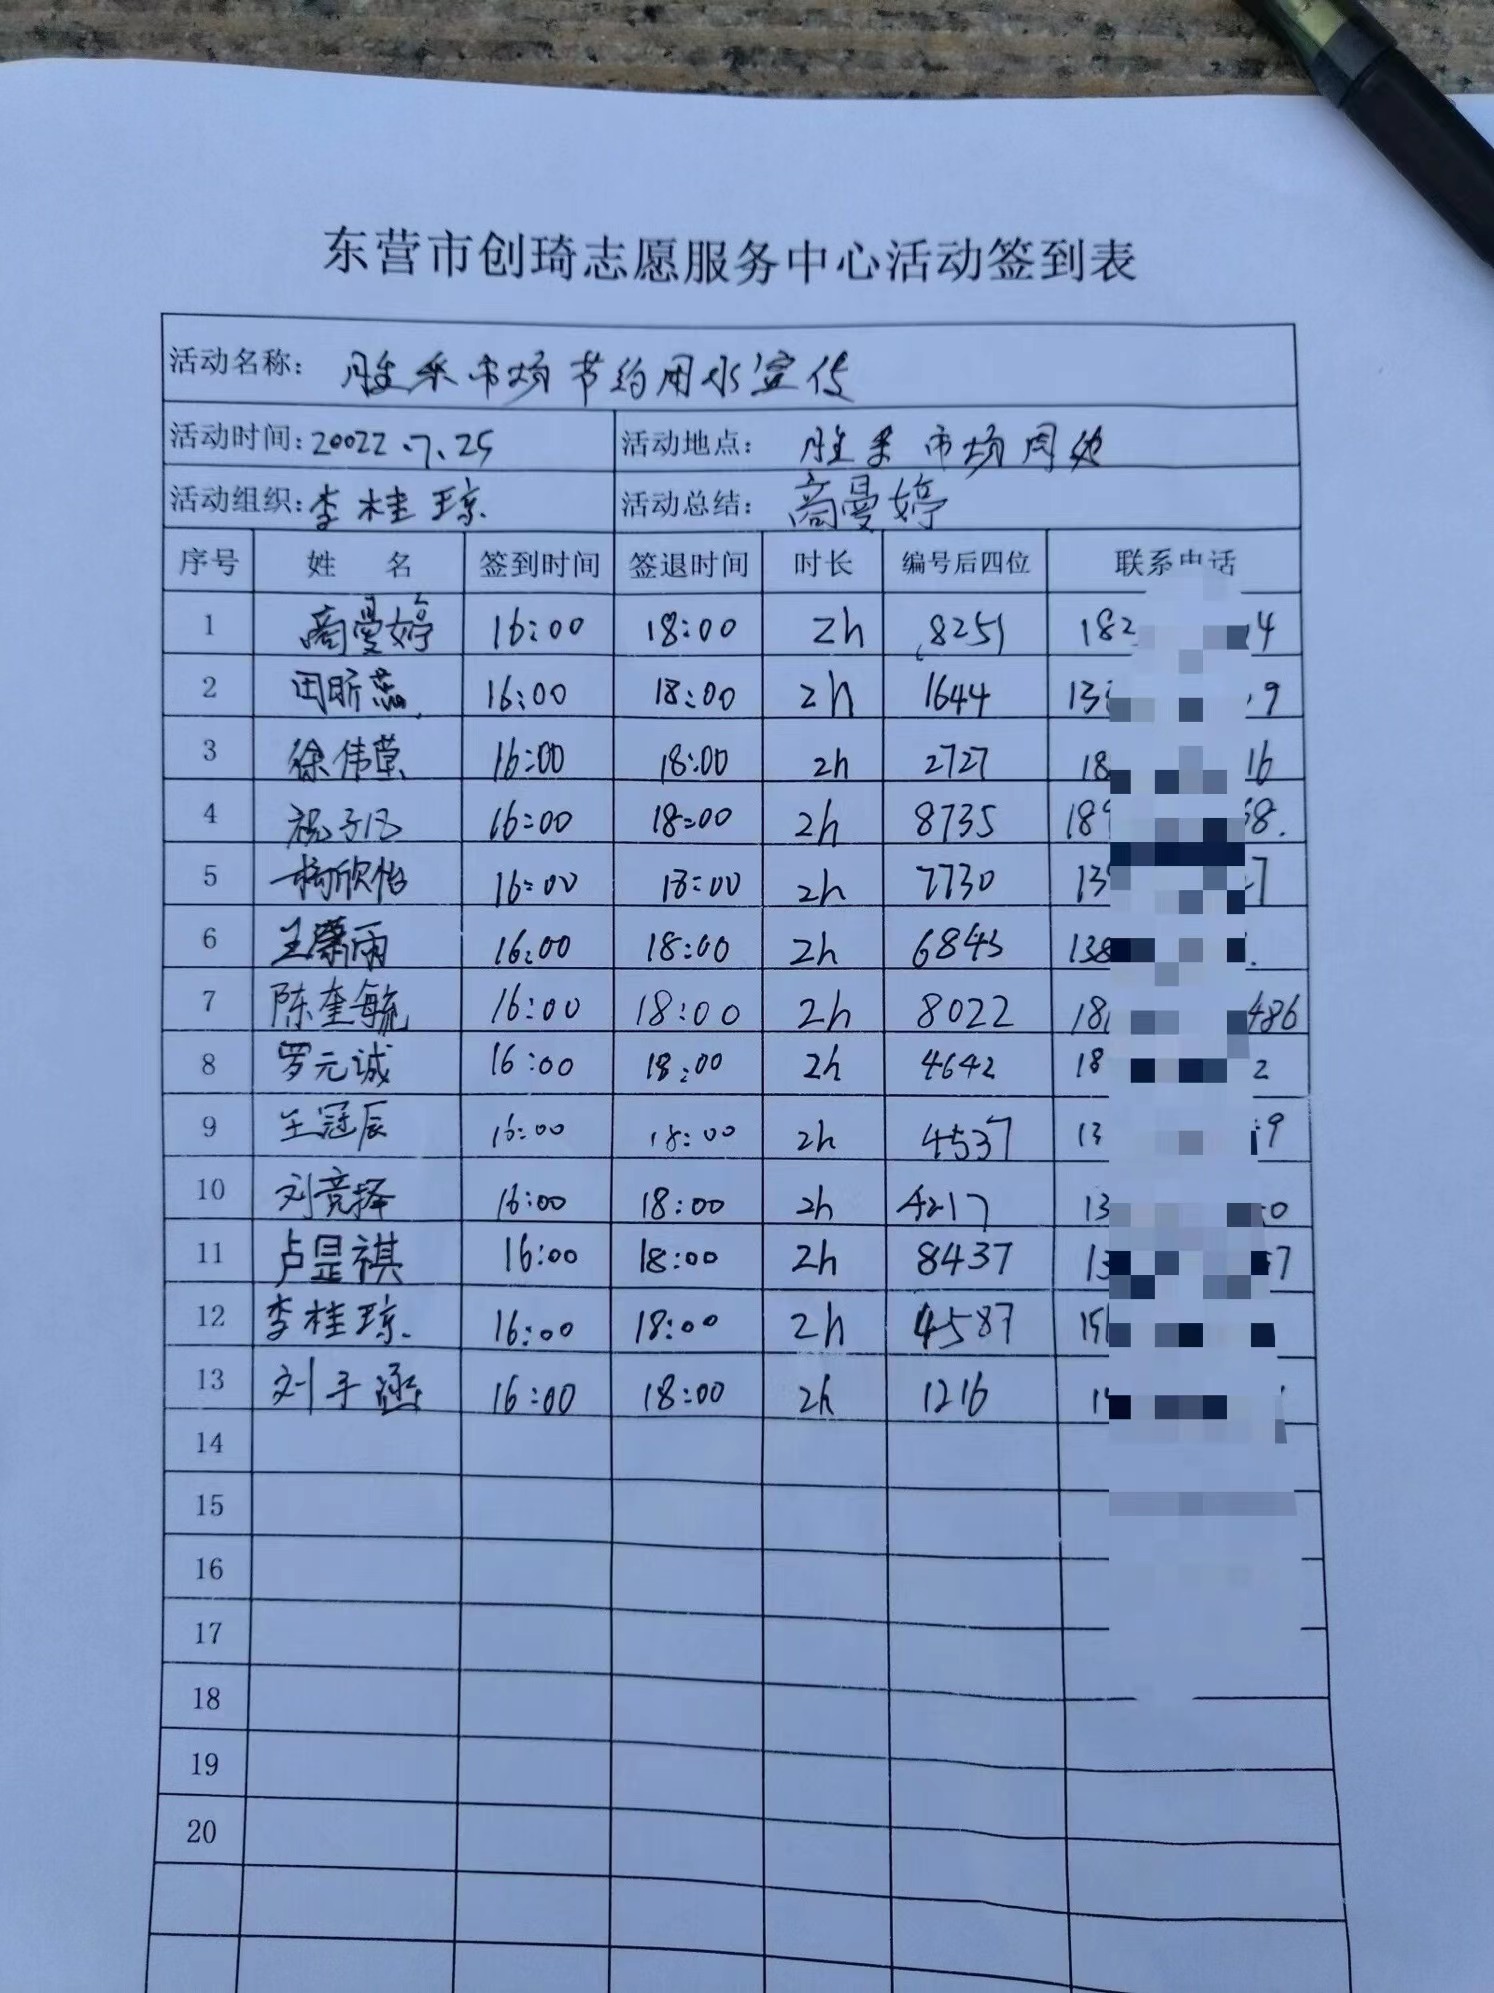 东营市创琦志愿服务中心活动签到表
活动名称： 胜采市场节约用水宣传
活动时间：20022.7.25 活动地点： 胜采市场周边
活动组织：李桂琼 活动总结： 商曼婷
序号 姓 名 签到时间 签退时间 时长 编号后四位 联系电话
1 商曼婷 16:00 18:00 2h 8251 182 4
2 田昕蕊 16:00 18:00 2h 1644 13 9
3 徐伟 16:00 18:00 2h 2727 18 16
4 祝子 16:00 18:00 2h 8735 189 68.
5 杨欣怡 16:00 18:00 2h 7730 13 7
6 王 雨 16:00 18:00 2h 6843 138
7 陈奎毓 16:00 18:00 2h 8022 18 486
8 罗元诚 16:00 18:00 2h 4642 18 2
9 王冠辰 16:00 18:00 2h 4537 13 9
10 刘竞择 16:00 18:00 2h 4217 13 0
11 卢昰祺 16:00 18:00 2h 8437 13 7
12 李桂琼. 16:00 18:00 2h 4587 15
13 刘子涵 16:00 18:00 2h 1216 1
14
15
16
17
18
19
20